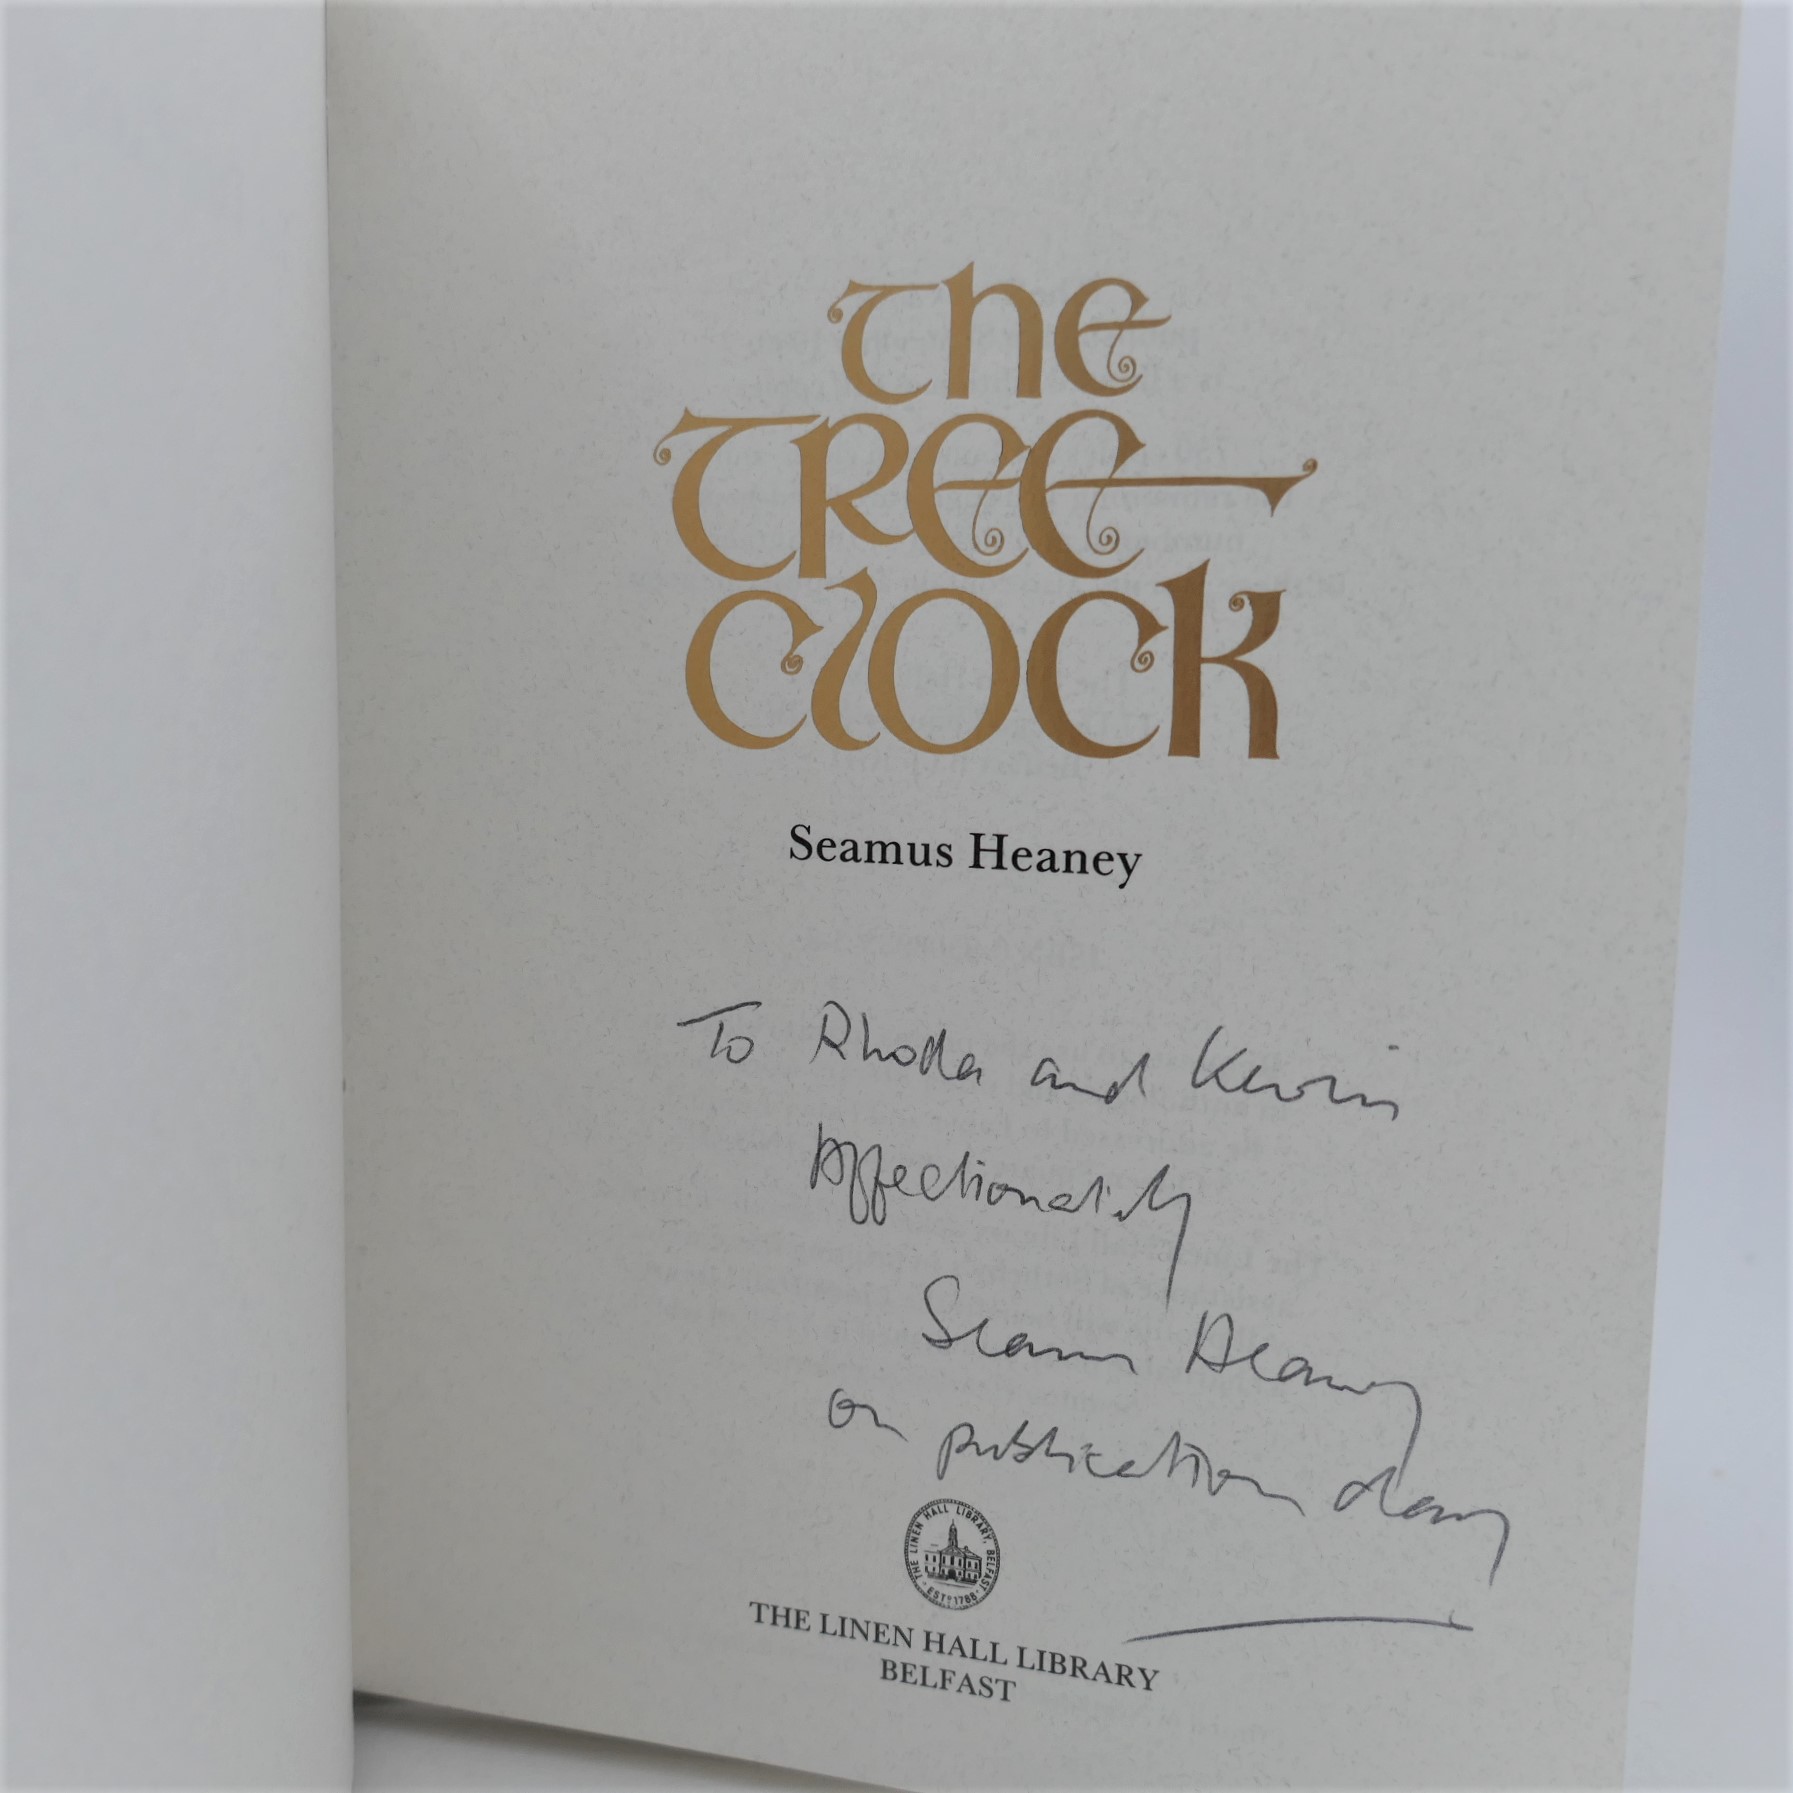 The
Tree
Clock
Seamus Heaney
To Rhoda and Kevin
Affectionately
Seamus Heaney
on publication day
THE LINEN HALL LIBRARY, BELFAST
· ESTD 1788 ·
THE LINEN HALL LIBRARY
BELFAST